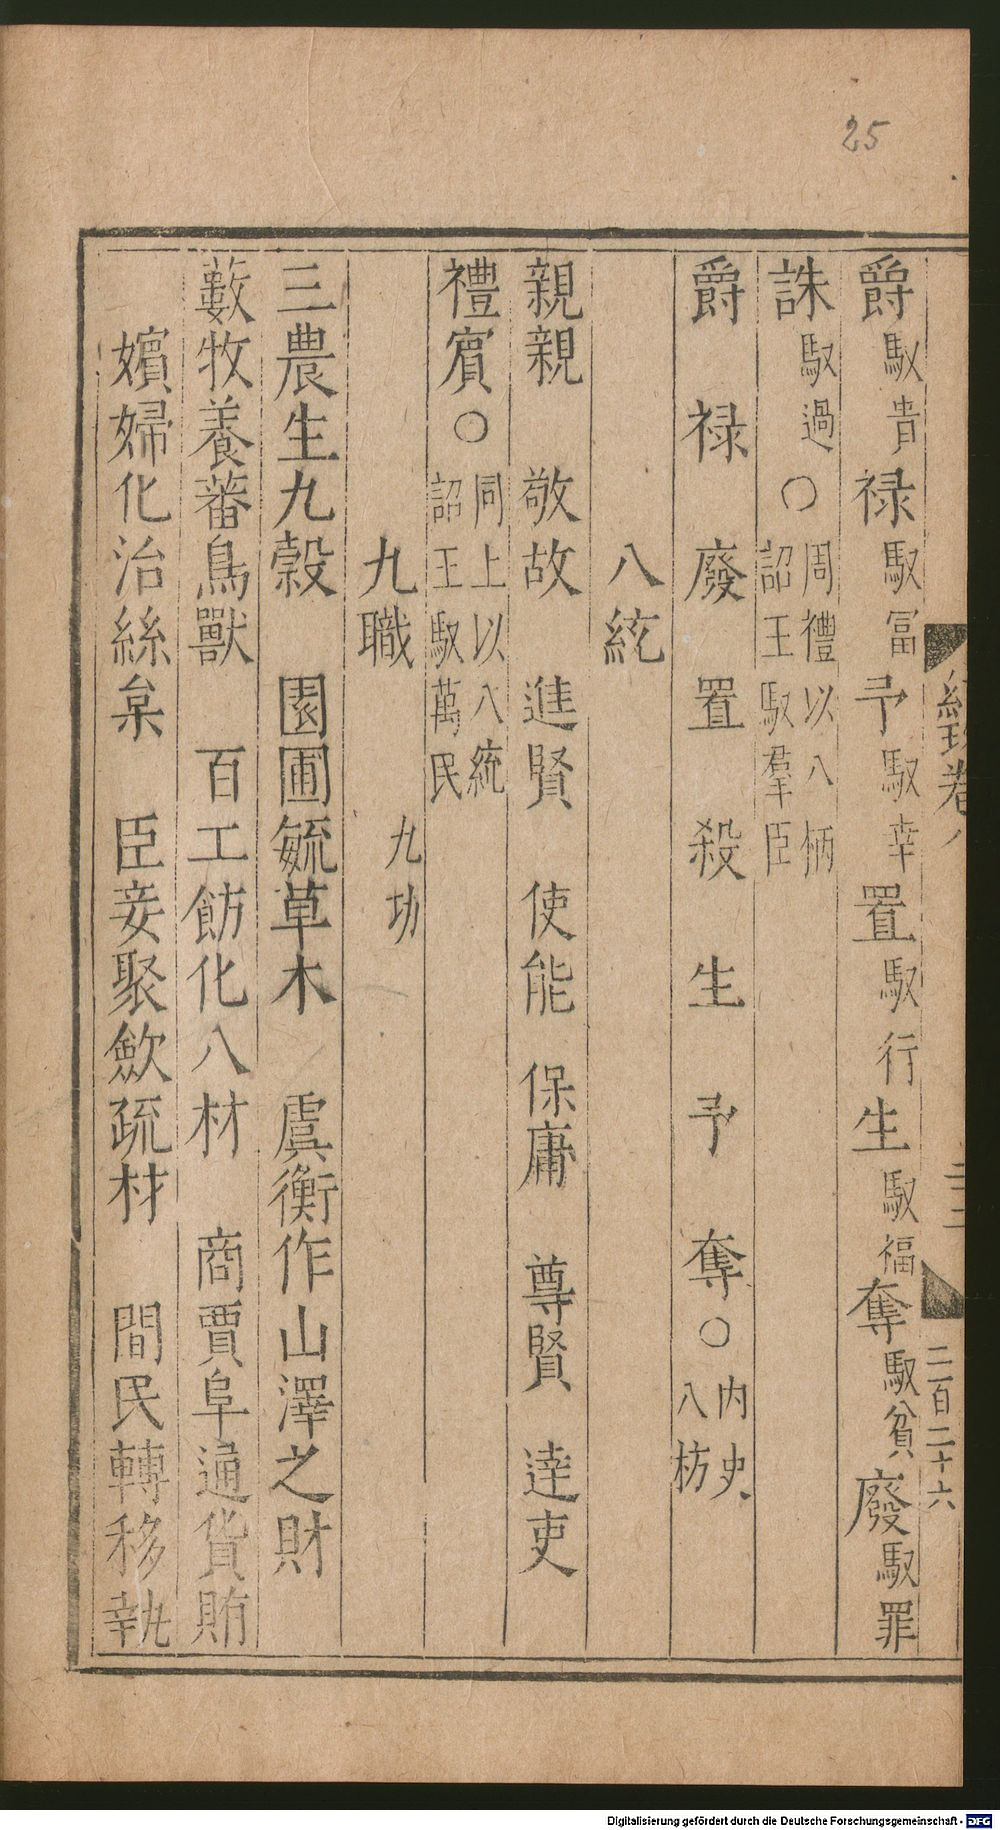 25
爵馭貴禄馭富予馭幸置馭行生馭福奪馭貧廢馭罪
誅馭過○周禮以八柄詔王馭羣臣
爵 禄 廢 置 殺 生 予 奪○内史八枋
八統
親親 敬故 進賢 使能 保庸 尊賢 逹吏
禮賔○同上以八統詔王馭萬民
九職 九功
三農生九榖 園圃毓草木 虞衡作山澤之財
藪牧養蕃鳥獸 百工飭化八材 商賈阜通貨賄
嬪婦化治絲枲 臣妾聚斂疏材 間民轉移執
卷八
二百二十六
Digitalisierung gefördert durch die Deutsche Forschungsgemeinschaft - DFG